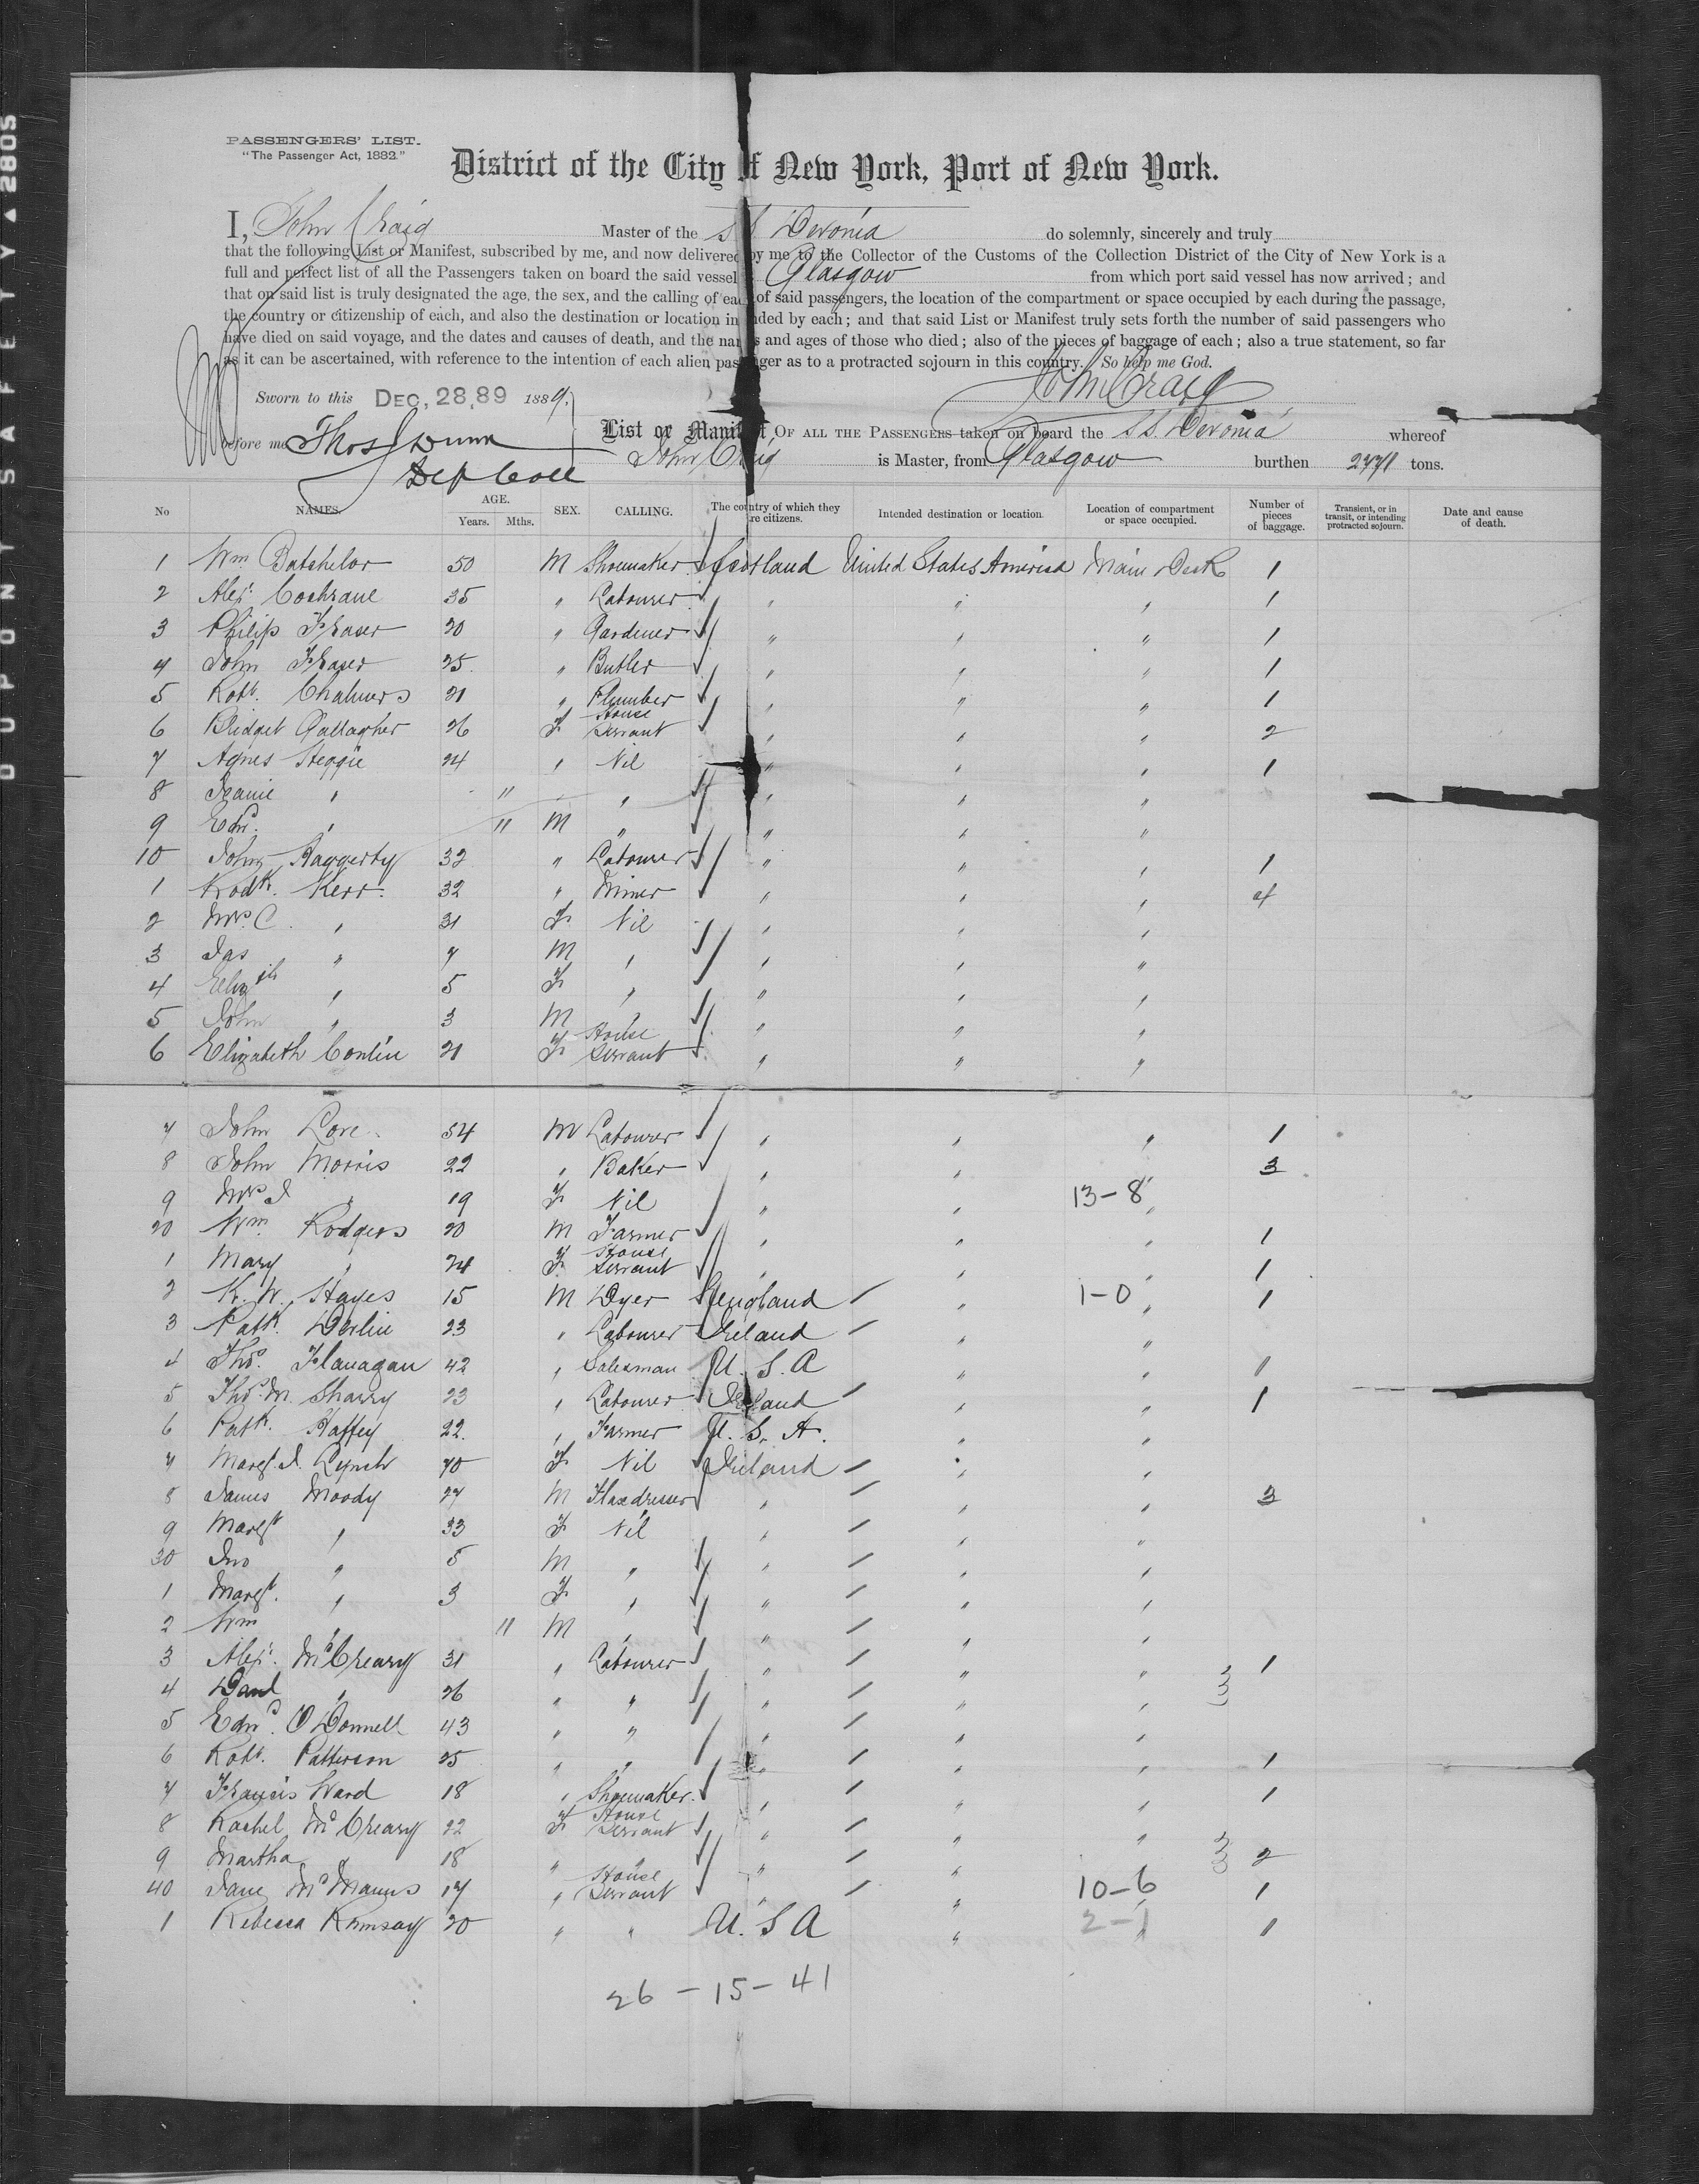 PASSENGERS' LIST.
"The Passenger Act, 1882."
District of the City of New York, Port of New York.
I, John Craig Master of the S.S. Devonia do solemnly, sincerely and truly
that the following List or Manifest, subscribed by me, and now delivered by me to the Collector of the Customs of the Collection District of the City of New York is a
full and perfect list of all the Passengers taken on board the said vessel Glasgow from which port said vessel has now arrived; and
that on said list is truly designated the age, the sex, and the calling of each of said passengers, the location of the compartment or space occupied by each during the passage,
the country or citizenship of each, and also the destination or location intended by each; and that said List or Manifest truly sets forth the number of said passengers who
have died on said voyage, and the dates and causes of death, and the names and ages of those who died; also of the pieces of baggage of each; also a true statement, so far
as it can be ascertained, with reference to the intention of each alien passenger as to a protracted sojourn in this country. So help me God.
John Craig
Sworn to this DEC, 28, 89 1889.
before me Thos J Dunn
Dep Coll
List or Manifest OF ALL THE PASSENGERS taken on board the S.S. Devonia whereof
John Craig is Master, from Glasgow burthen 2771 tons.
No NAMES. AGE. Years. Mths. SEX. CALLING. The country of which they are citizens. Intended destination or location. Location of compartment or space occupied. Number of pieces of baggage. Transient, or in transit, or intending protracted sojourn. Date and cause of death.
1 Wm Batchelor 50 M Shoemaker Scotland United States America Main Deck 1
2 Alexr Cochrane 35 " Labourer " " " 1
3 Philip Fraser 20 " Gardener " " " 1
4 John Fraser 25 " Butler " " " 1
5 Robt. Chalmers 21 " Plumber " " " 1
6 Bridget Gallagher 26 F House Servant " " " 2
7 Agnes Steggie 24 " Nil " " " 1
8 Jeanie " " " " " "
9 Edwd. " " M " " " "
10 John Haggerty 32 " Labourer " " " 1
1 Rodk. Kerr. 32 " Miner " " " 4
2 Mrs. C. " 31 F Nil " " "
3 Jas " 7 M " " " "
4 Elizth " 5 F " " " "
5 John " 3 M " " " "
6 Elizabeth Conlin 21 F House Servant " " "
7 John Love 54 M Labourer " " " 1
8 John Morris 22 " Baker " " " 3
9 Mrs J " 19 F Nil " " 13-8 "
20 Wm Rodgers 20 M Farmer " " " 1
1 Mary " 24 F House Servant " " " 1
2 K. W. Hayes 15 M Dyer England " 1-0 " 1
3 Patk. Devlin 23 " Labourer Ireland " "
4 Thos. Flanagan 42 " Salesman U.S.A " " 1
5 Thos. M. Sharry 23 " Labourer Ireland " " 1
6 Patk. Haffey 22. " Farmer U.S.A. " "
7 Margt. J. Lynch 70 F Nil Ireland " "
8 James Moody 27 M Flaxdresser " " " 3
9 Margt " 33 F Nil " " "
30 Jno " 5 M " " " "
1 Margt. " 3 F " " " "
2 Wm " " M " " " "
3 Alexr. McCreary 31 " Labourer " " " 1
4 David " 26 " " " " "
5 Edwd. O'Donnell 43 " " " " "
6 Robt. Patterson 25 " " " " " 1
7 Francis Ward 18 " Shoemaker " " " 1
8 Rachel McCreary 22 F House Servant " " "
9 Martha " 18 " " " " 2
40 Jane McManus 17 " House Servant " " 10-6 " 1
1 Rebecca Ramsay 20 " " U.S.A " 2-1 " 1
26 - 15 - 41
DUPONT SAFETY ▲ 2805